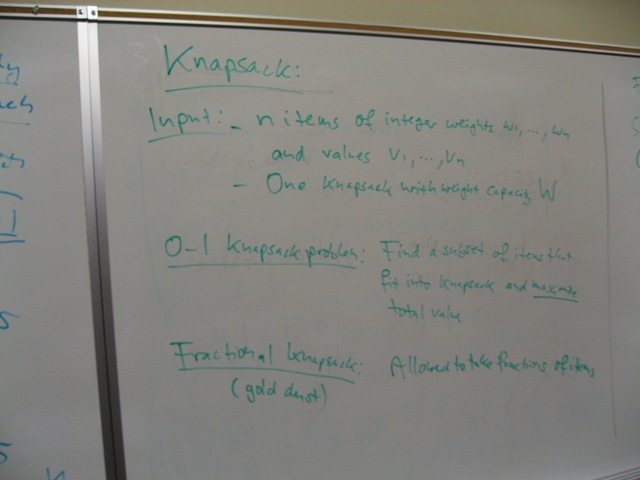 Knapsack:
Input: - n items of integer weights w1, ..., wn
and values v1, ..., vn
- One knapsack with weight capacity W
0-1 Knapsack problem: Find a subset of items that
fit into knapsack and maximize
total value
Fractional knapsack: Allowed to take fractions of items
(gold dust)